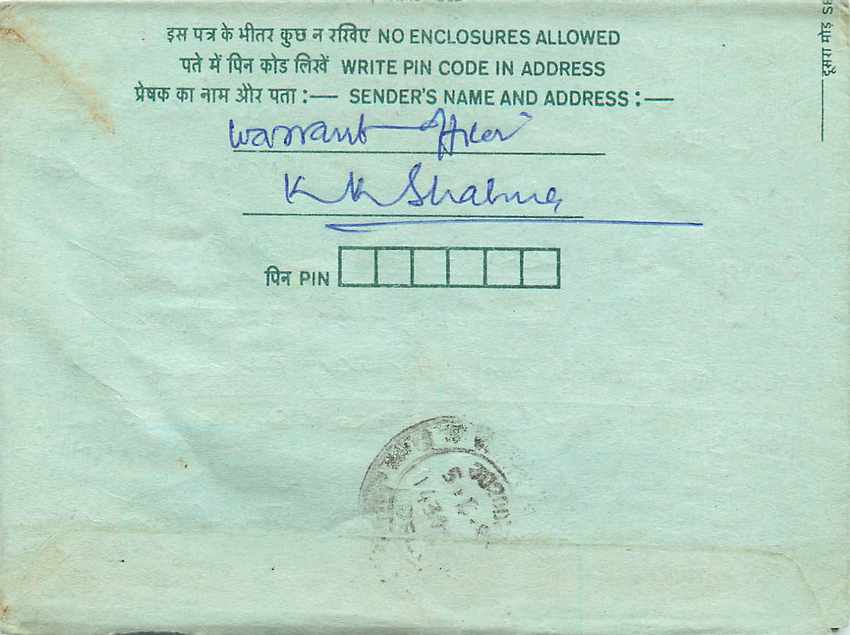 इस पत्र के भीतर कुछ न रखिए NO ENCLOSURES ALLOWED
पते में पिन कोड लिखें WRITE PIN CODE IN ADDRESS
प्रेषक का नाम और पता :— SENDER'S NAME AND ADDRESS :—
Warrant Officer
K K Sharma
पिन PIN
दूसरा मोड़